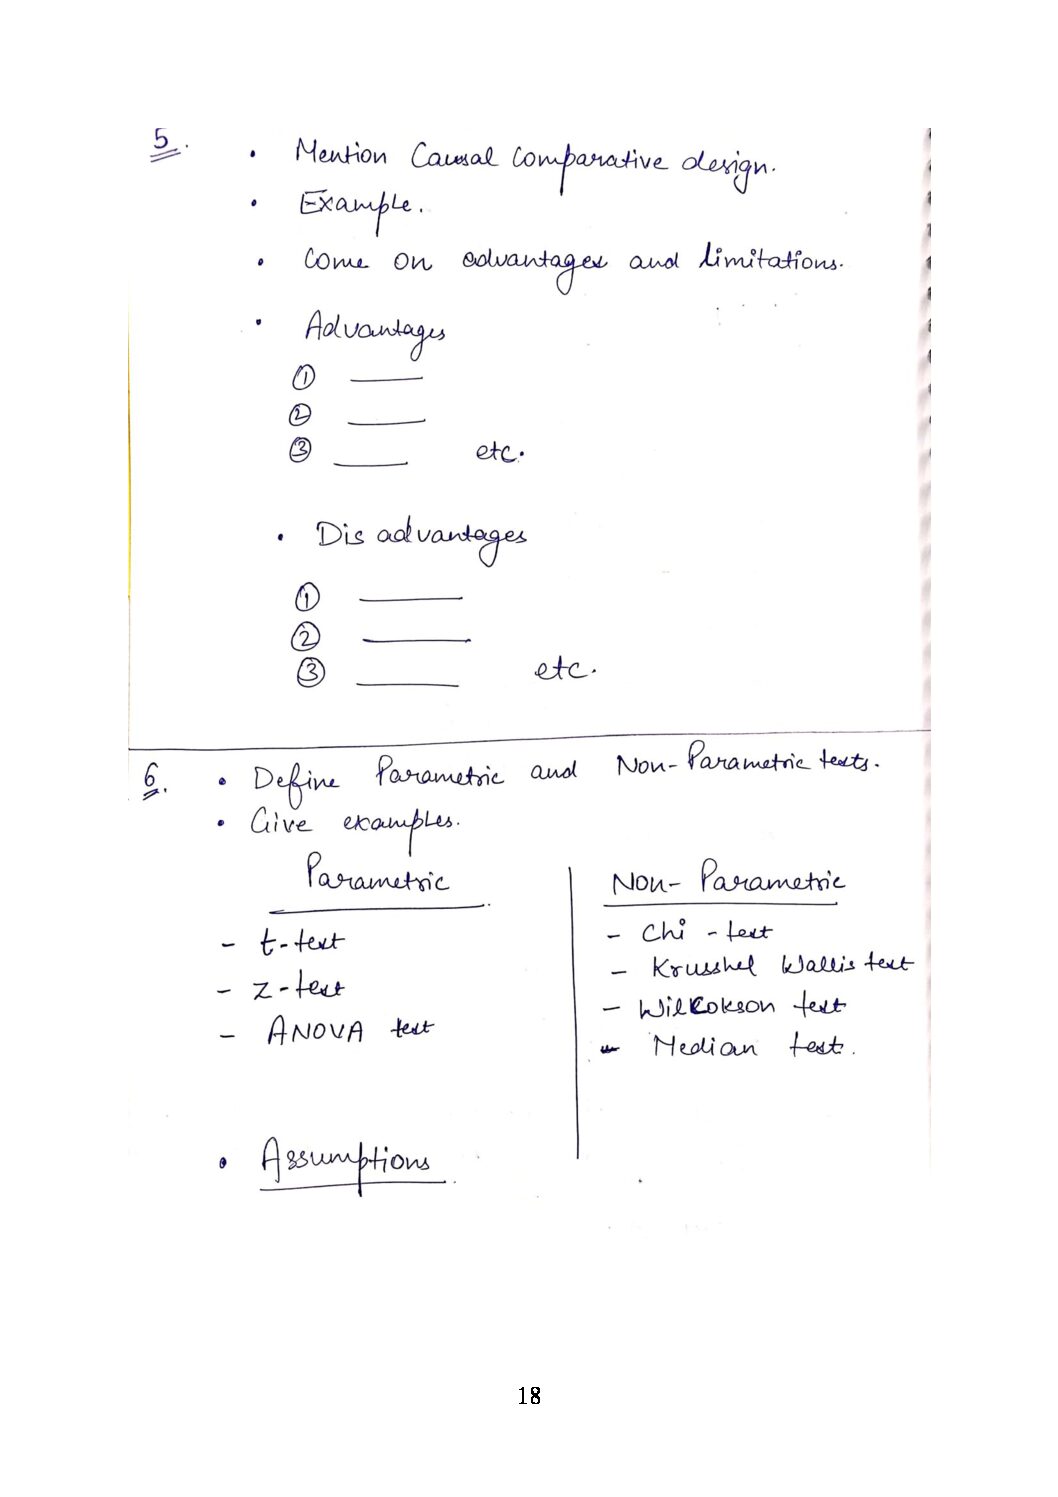 5.
• Mention Causal Comparative design.
• Example.
• Come on advantages and limitations.
• Advantages
① ——
② ——
③ —— etc.
• Dis advantages
① ——
② ——
③ —— etc.
6. • Define Parametric and Non-Parametric tests.
• Give examples.
Parametric
- t-test
- z-test
- ANOVA test
Non-Parametric
- Chi-test
- Krusshel Wallis test
- Wilcokson test
- Median test.
• Assumptions
18